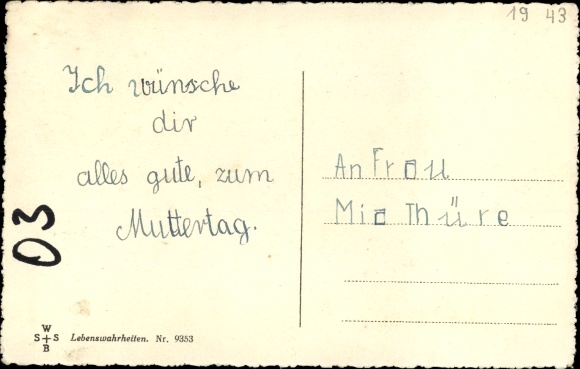 19 43
Ich wünsche
dir
alles gute, zum
Muttertag.
An Frau
Mia Thüre
03
W
S S
B
Lebenswahrheiten. Nr. 9353